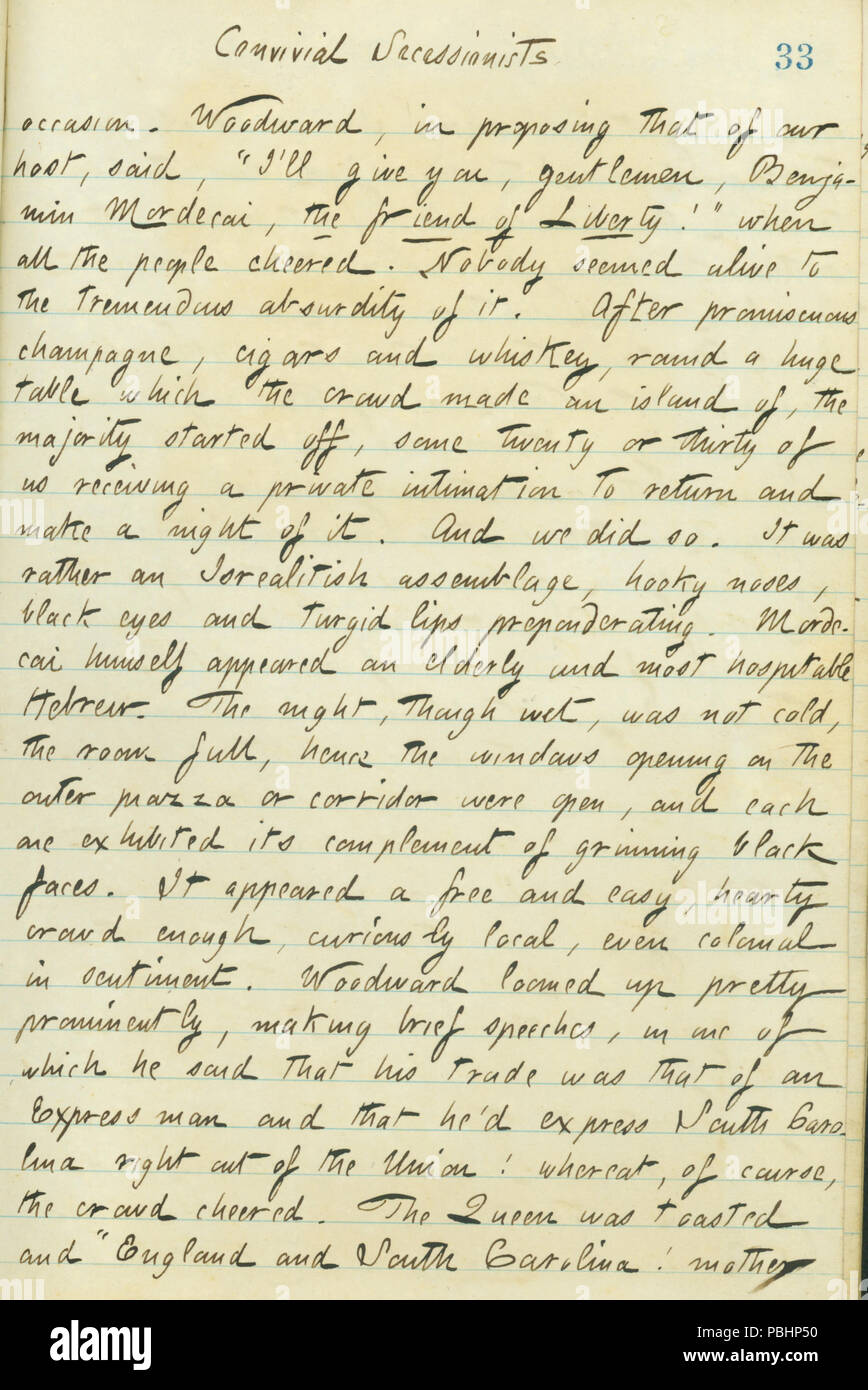 Convivial Secessionists
33
occasion. Woodward, in proposing that of our
host, said, "I'll give you, gentlemen, Benja-
min Mordecai, the friend of Liberty!" when
all the people cheered. Nobody seemed alive to
the tremendous absurdity of it. After promiscuous
champagne, cigars and whiskey, round a huge
table which the crowd made an island of, the
majority started off, some twenty or thirty of
us receiving a private intimation to return and
make a night of it. And we did so. It was
rather an Isrealitish assemblage, hooky noses,
black eyes and turgid lips preponderating. Morde-
cai himself appeared an elderly and most hospitable
Hebrew. The night, though wet, was not cold,
the room full, hence the windows opening on the
outer piazza or corridor were open, and each
one exhibited its complement of grinning black
faces. It appeared a free and easy, hearty
crowd enough, curiously local, even colonial
in sentiment. Woodward loomed up pretty
prominently, making brief speeches, in one of
which he said that his trade was that of an
Express man and that he'd express South Caro-
lina right out of the Union! whereat, of course,
the crowd cheered. The Queen was toasted
and "England and South Carolina! mother
alamy
Image ID: PBHP50
www.alamy.com